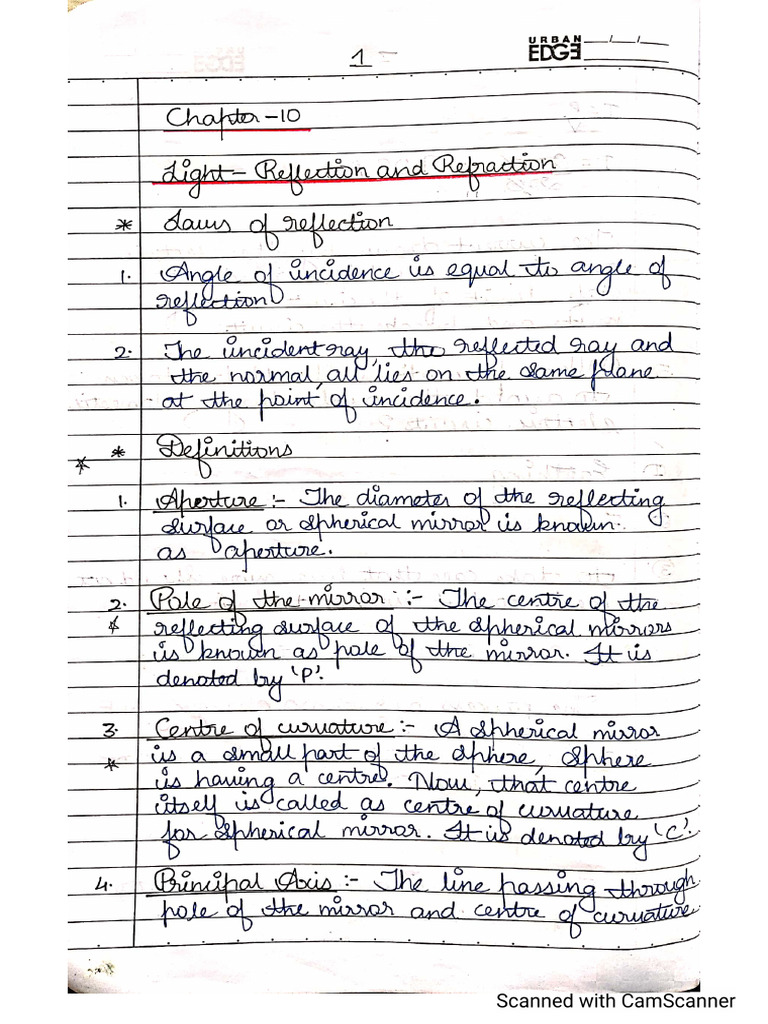 URBAN
EDGE
1
Chapter-10
Light - Reflection and Refraction
* Laws of reflection
1. Angle of incidence is equal to angle of
reflection
2. The incident ray, the reflected ray and
the normal, all lies on the same plane
at the point of incidence.
* * Definitions
1. Aperture :- The diameter of the reflecting
surface or spherical mirror is known
as aperture.
2. Pole of the mirror :- The centre of the
* reflecting surface of the spherical mirrors
is known as pole of the mirror. It is
denoted by 'P'.
3. Centre of curvature :- A spherical mirror
is a small part of the sphere, sphere
* is having a centre. Now, that centre
itself is called as centre of curvature
for spherical mirror. It is denoted by 'C'.
4. Principal Axis :- The line passing through
pole of the mirror and centre of curvature
Scanned with CamScanner